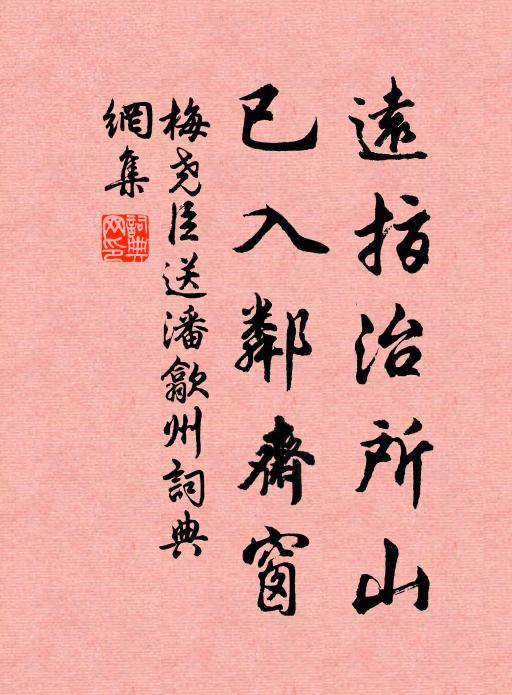 遠指治所山
已入鄰齋窗
梅堯臣送潘歙州詞典
網集
詞典網印